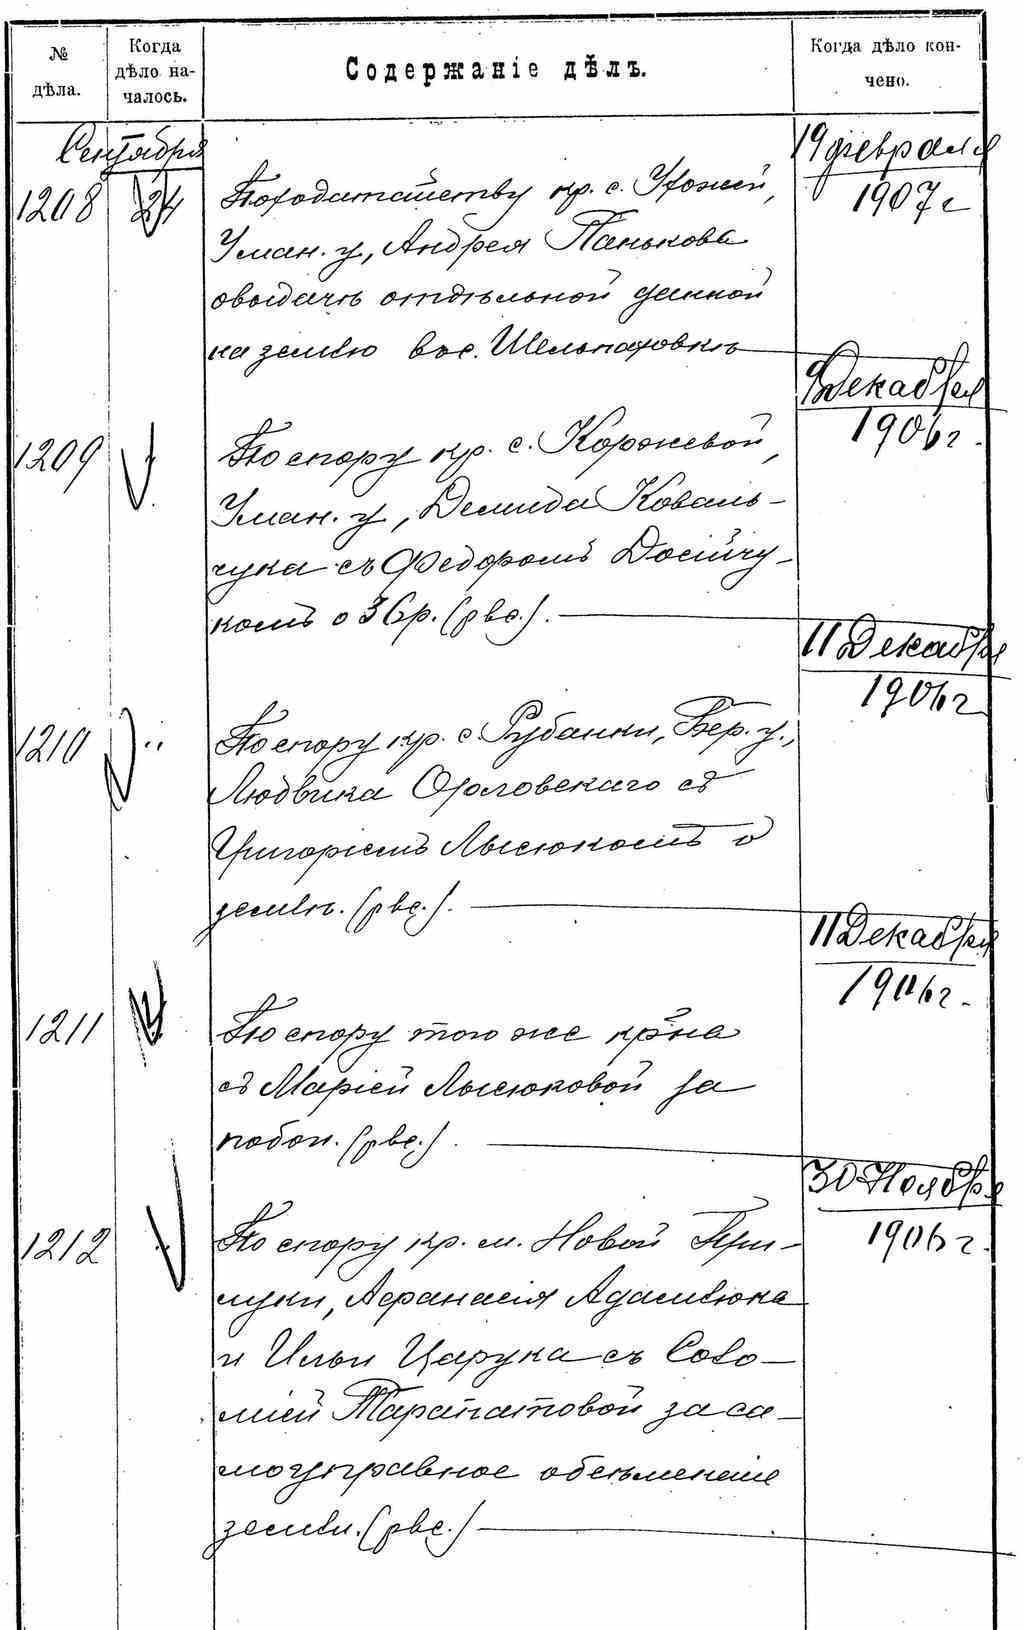 №
дѣла.
Когда
дѣло на-
чалось.
Содержаніе дѣлъ.
Когда дѣло кон-
чено.
Сентября
1208 24
По ходатайству кр. с.
Уман. у, Андрея Панькова
о выдачѣ отдѣльной данной
на землю въ с.
19 февраля
1907 г
1209
По спору кр. с. Коржевой,
Уман. у, Демида Коваль-
чука съ Федоромъ Досійчу-
комъ о 36 р. (рвс.).
9 Декабря
1906 г.
1210
По спору кр. с. Рубанки, Бер. у.,
Людвика Орловскаго съ
Григоріемъ Лысюкомъ о
землѣ. (рвс.).
11 Декабря
1906 г
1211
По спору того же кр-на
съ Маріей Лысюковой за
побои. (рвс.).
11 Декабря
1906 г.
1212
По спору кр. м. Новой При-
луки, Афанасія Адамлюка
и Ильи Царука съ Соло-
міей Тарапатовой за са-
моуправное обсѣмененіе
земли. (рвс.)
30 Ноября
1906 г.